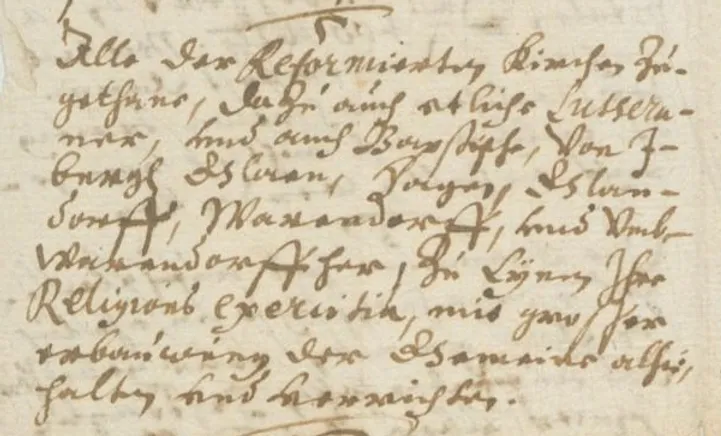 Alle der Reformierten Kirchen Zu-
gethane, dazu auch etliche Luthera-
ner, und auch Papstische, von I-
bergh, Glaen, Hagen, Glan-
dorff, Warendorff, und Umb-
warendorff her, zu Lynen Ihre
Religions exercitia, mit grosser
erbauwung der Gemeine alhie,
halten und verrichten.